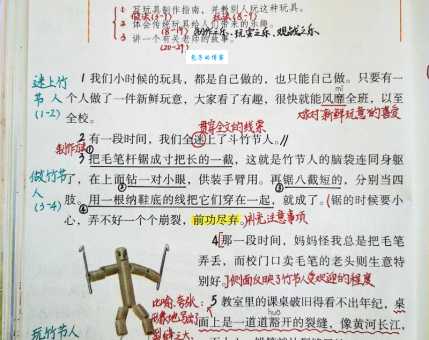 1 写玩具制作指南，并教别人玩这种玩具。
做法(3-7) 玩法(8-19)
2 体会传统玩具给人们带来的乐趣。
(8-19) 制作之乐、玩赏之乐、观战之乐
3 讲一个有关老师的故事。
(20-29)
迷上竹节人
(1-2)
1 我们小时候的玩具，都是自己做的，也只能自己做。只要有一
mǐ
个人做了一件新鲜玩意，大家看了有趣，很快就能风靡全班，以至
全校。
对新鲜玩意的喜爱
贯穿全文的线索
2 有一段时间，我们全迷上了斗竹节人。//
制作方法
做竹节人
(3-4)
3 把毛笔杆锯成寸把长的一截，这就是竹节人的脑袋连同身躯
了，在上面钻一对小眼，供装手臂用。再锯八截短的，分别当四
肢。用一根纳鞋底的线把它们穿在一起，就成了。(锯的时候要小
心，弄不好一个个崩裂，前功尽弃。
注意事项
4 那一段时间，妈妈怪我总是把毛笔
弄丢，而校门口卖毛笔的老头则生意特
别好。
侧面反映了竹节人受欢迎的程度
比喻、夸张：
5 教室里的课桌破旧得看不出年纪，桌
huō
面上是一道道豁开的裂缝，像黄河长江，
玩竹节人